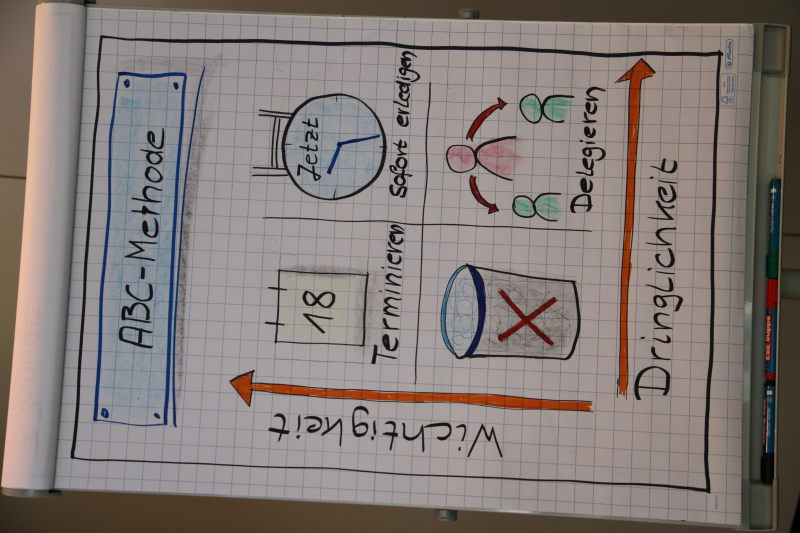 ABC-Methode
18
Terminieren
Jetzt
Sofort erledigen
Delegieren
Wichtigkeit
Dringlichkeit